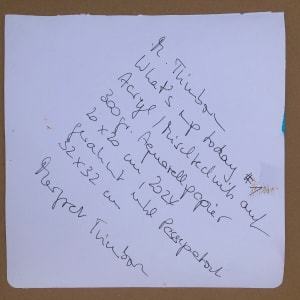 M. Thimbon
What's up today #
Acryl / Mischtechnik auf
300 gr. Aquarellpapier
20 x 20 cm 2024
gerahmt mit Passepartout
32 x 32 cm
Margret Thimbon